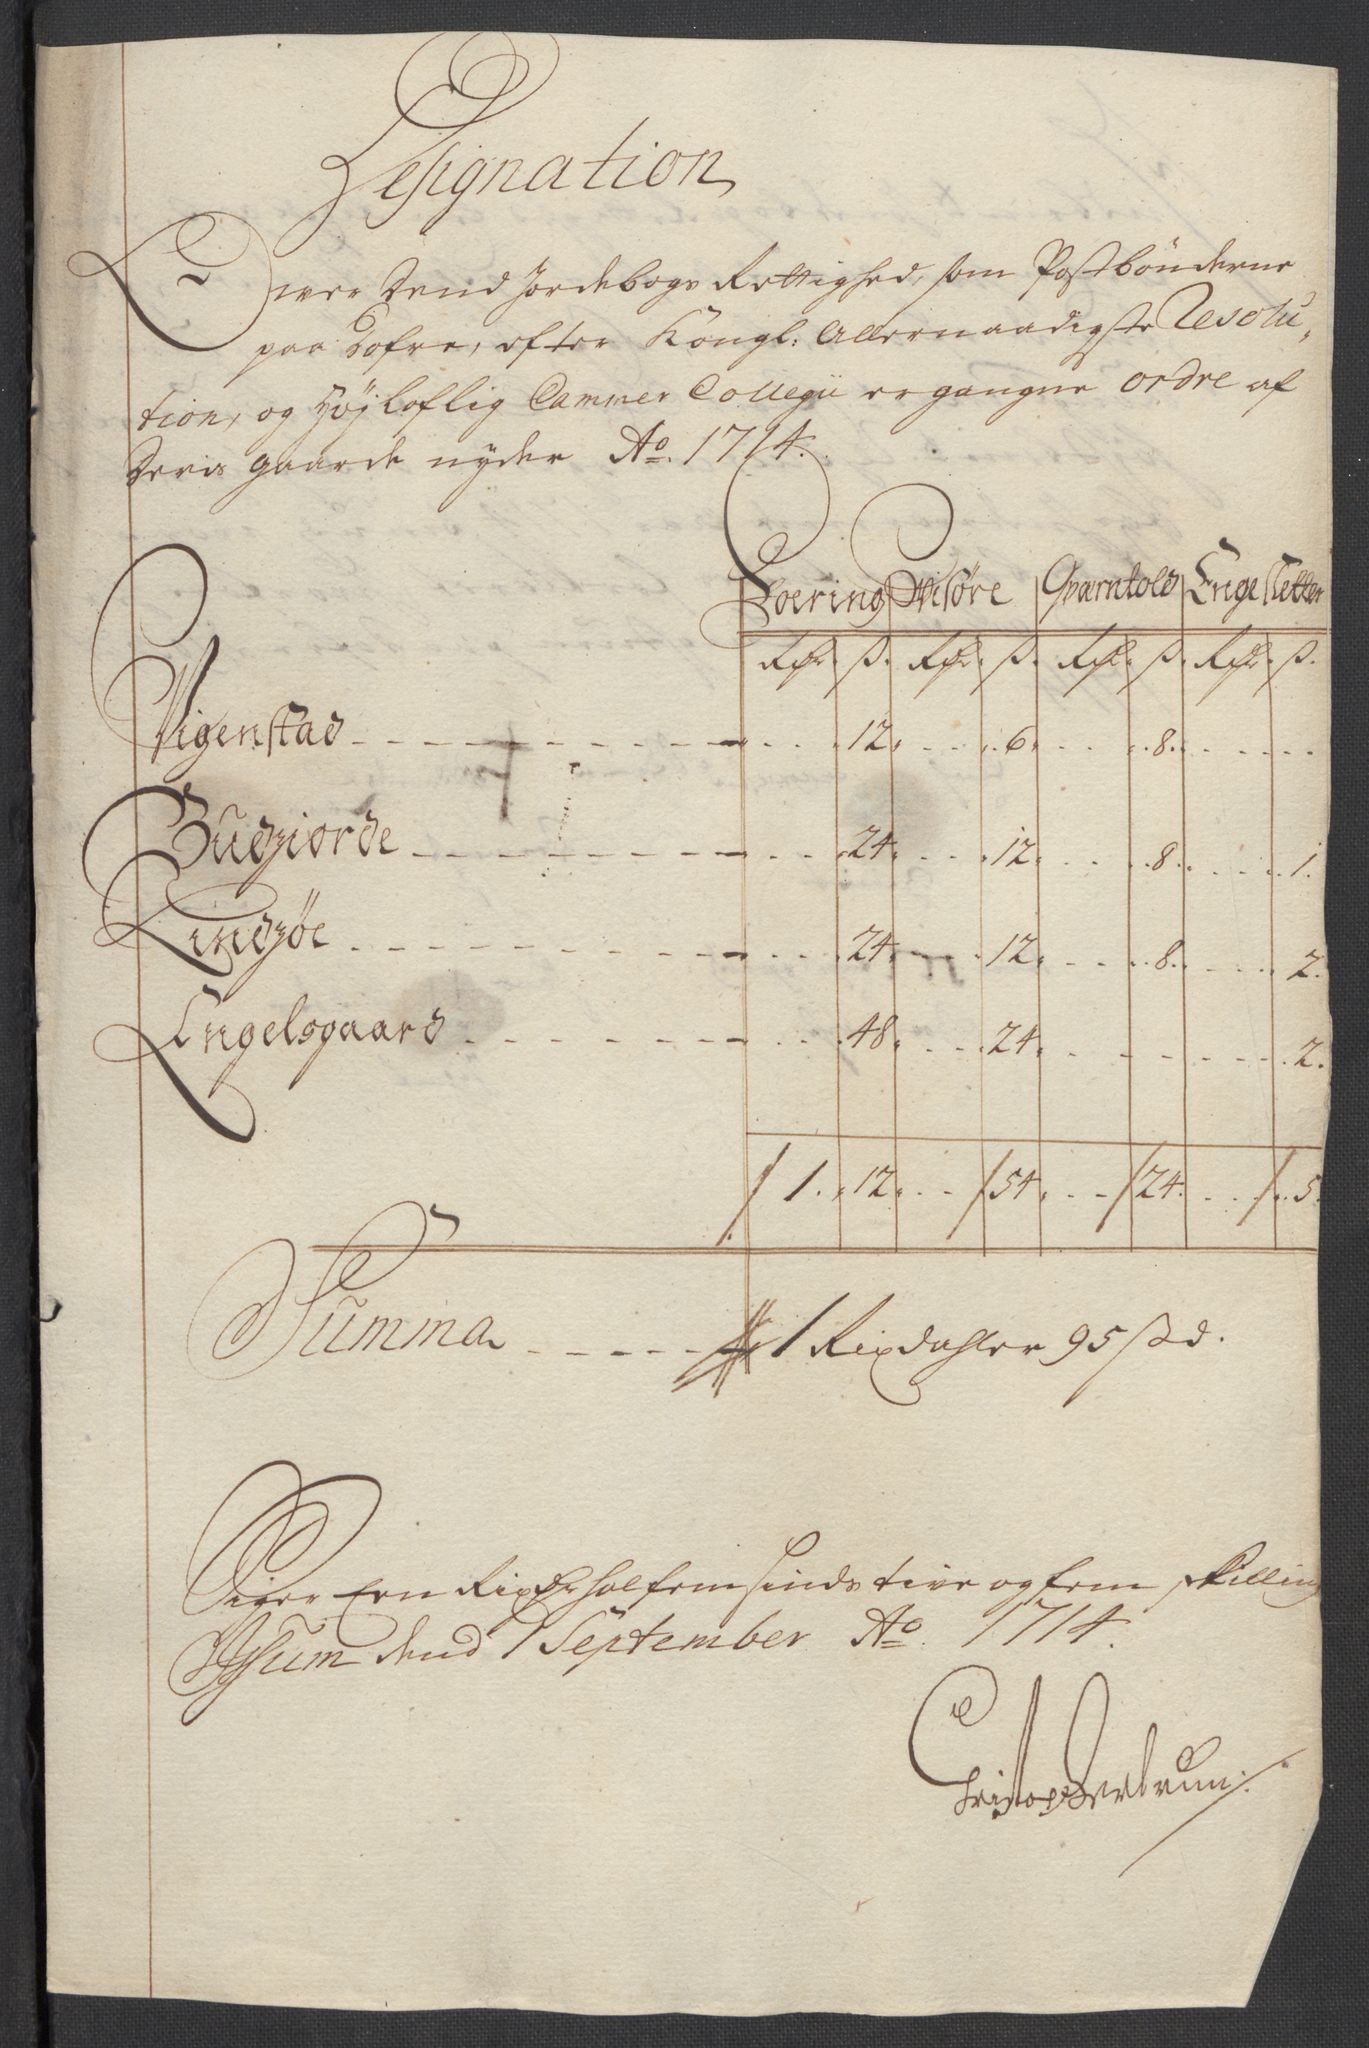 Designation
Over dend Jordebogs Rettighed, som Postbönderne
paa Dofre, efter Kongl: Allernaadigste Resolu-
tion, og Höjloflig Cammer Collegii ergangne ordre af
deris gaarde nyder Ao. 1714.
Foering Witsøre Qværntold Engesletter
Rdr. ß. Rdr. ß. Rdr. ß. Rdr. ß.
Vigenstad - - - 12. - - - 6. - - - 8. - - -
Budziorde - - - 24. - - - 12. - - - 8. - - - 1.
Lindzöe - - - 24. - - - 12. - - - 8. - - - 2.
Engelsgaard - - - 48. - - - 24. - - - 2.
/ 1. 12. - - / 54. - - / 24. - - / 5.
Summa - - - 1 Rixdahler 95 ß d.
Siger Een Rixdr halfemsinds tive og fem skilling
dend 1 September Ao. 1714.